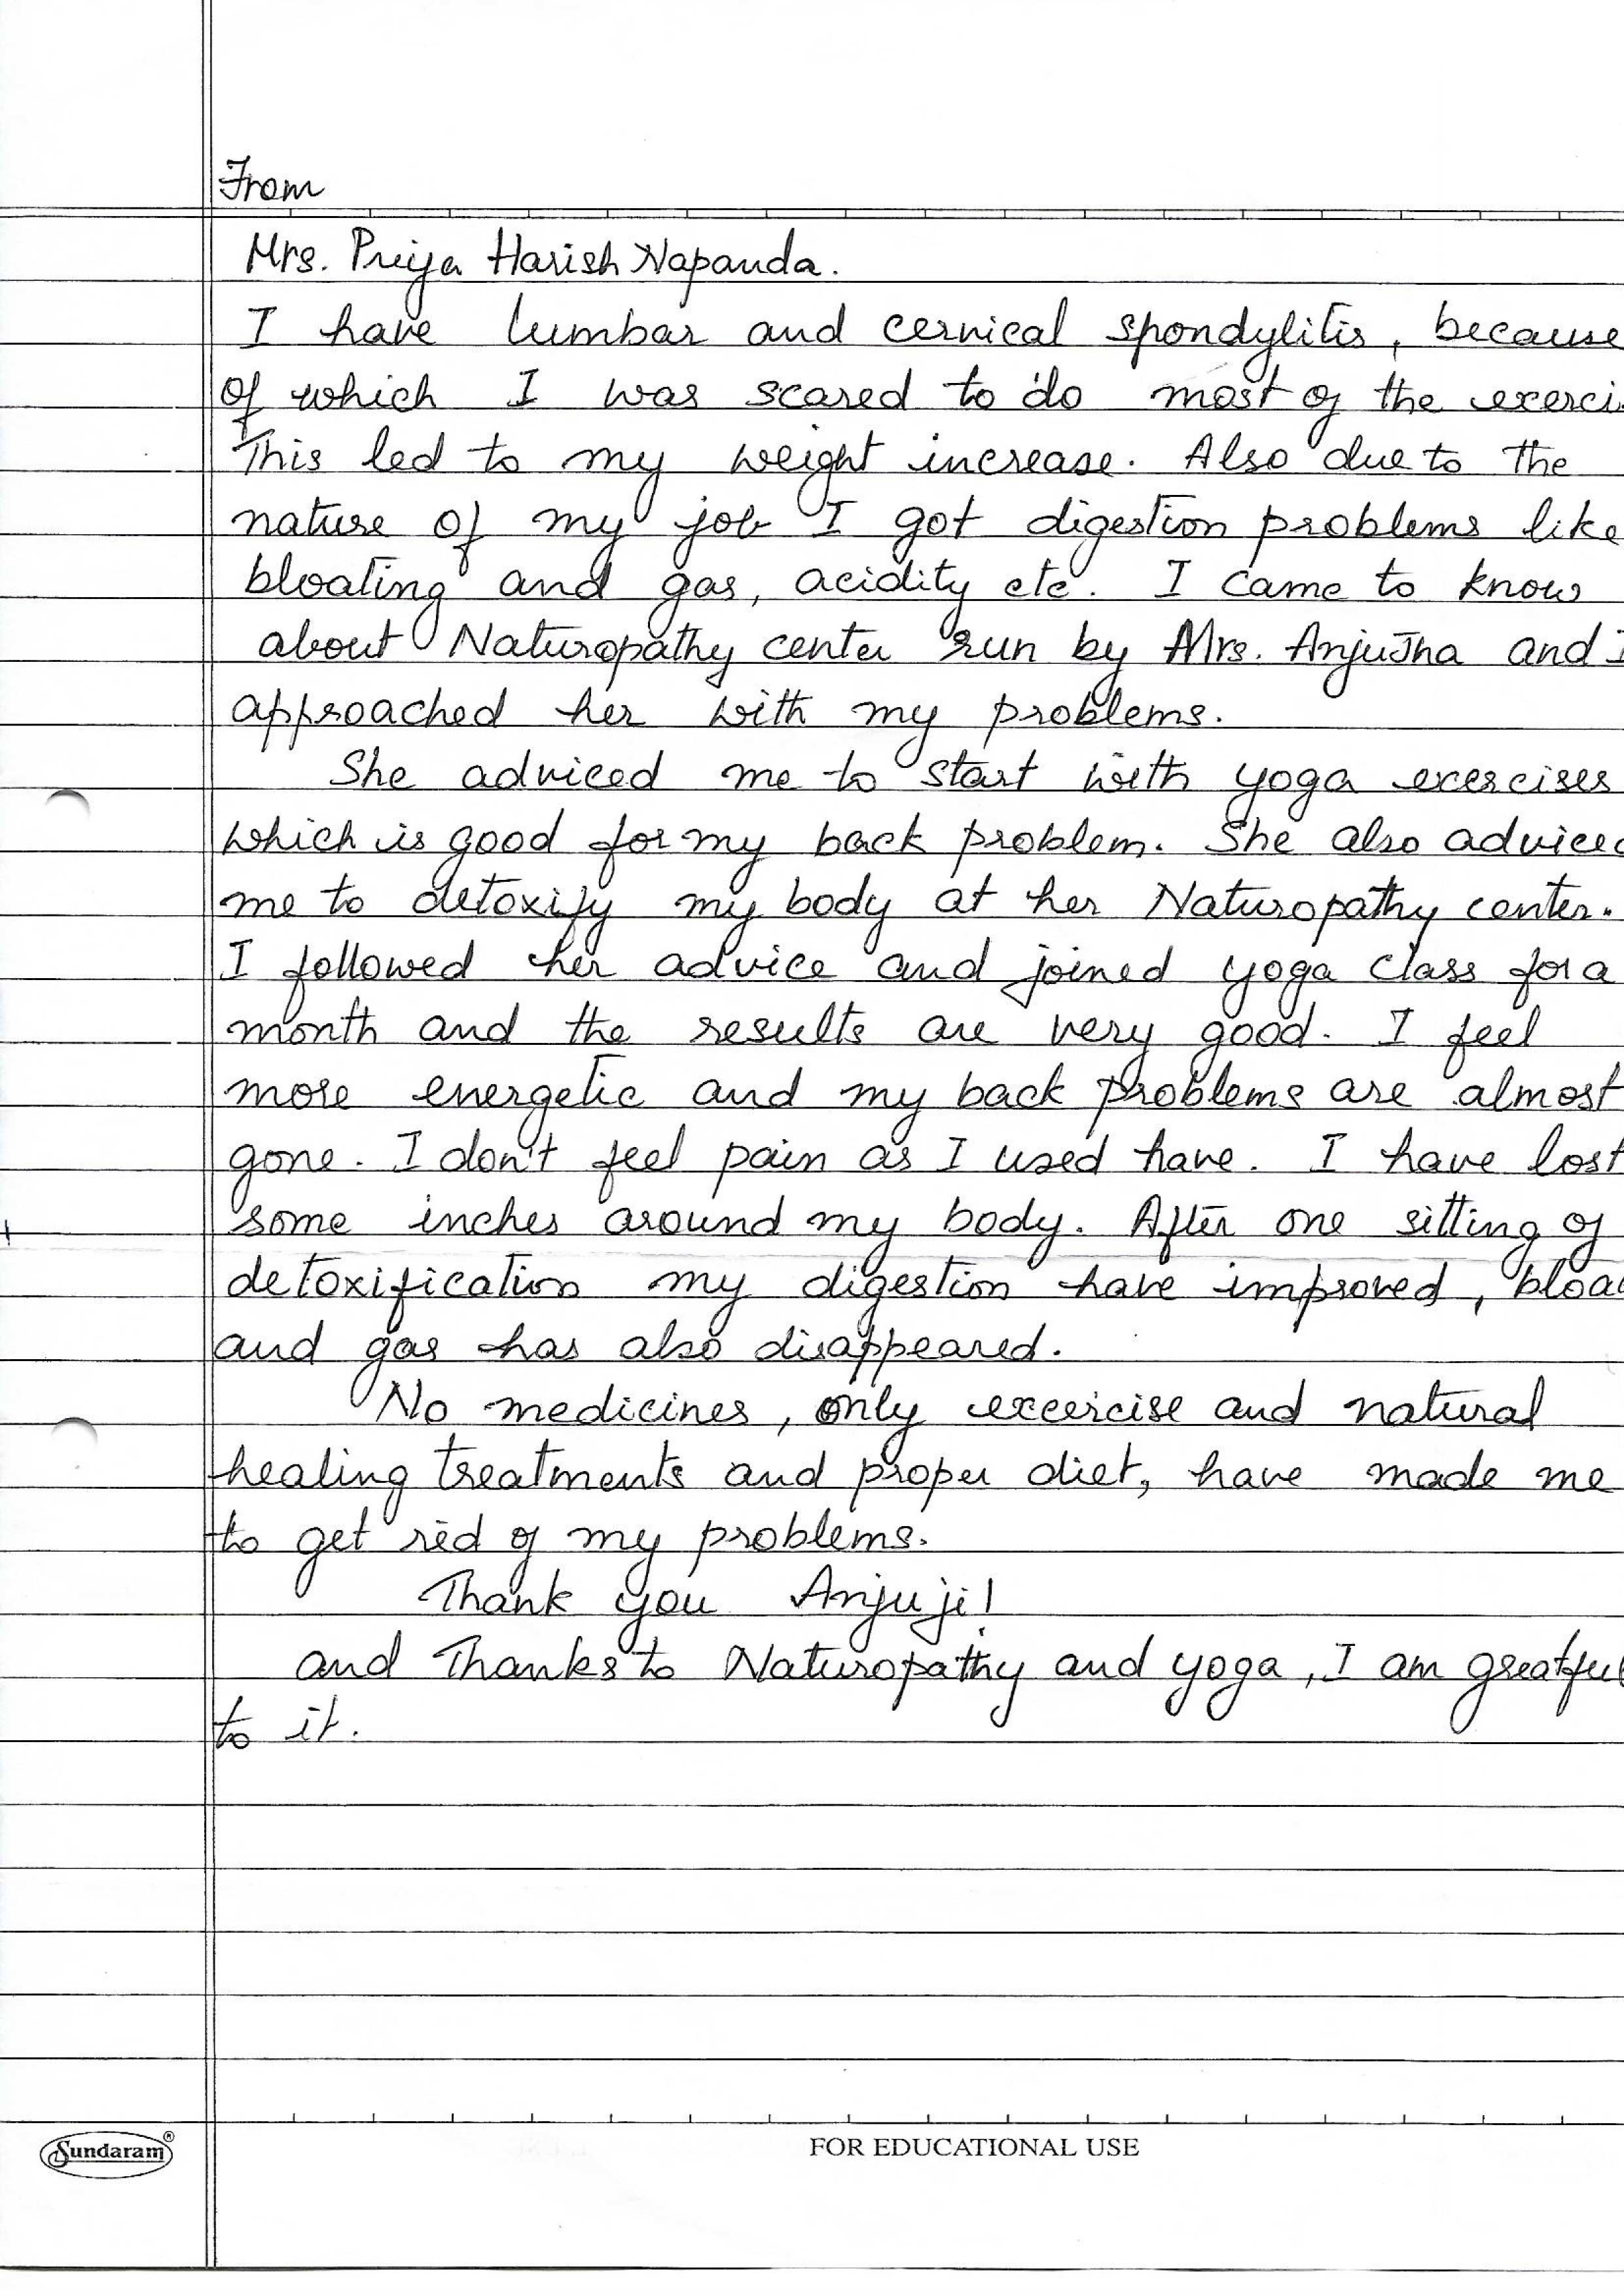 From
Mrs. Priya Harish Napanda.
I have lumbar and cervical spondylitis, because
of which I was scared to do most of the exerci
This led to my weight increase. Also due to the
nature of my job I got digestion problems like
bloating and gas, acidity etc. I came to know
about Naturopathy center run by Mrs. Anju Jha and I
approached her with my problems.
She adviced me to start with yoga exercises
which is good for my back problem. She also adviced
me to detoxify my body at her Naturopathy center.
I followed her advice and joined yoga class for a
month and the results are very good. I feel
more energetic and my back problems are almost
gone. I don't feel pain as I used have. I have lost
some inches around my body. After one sitting of
detoxification my digestion have improved, bloa
and gas has also disappeared.
No medicines, only excercise and natural
healing treatments and proper diet, have made me
to get rid of my problems.
Thank you Anju ji!
and Thanks to Naturopathy and yoga, I am greatful
to it.
Sundaram®
FOR EDUCATIONAL USE